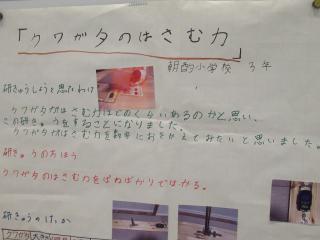 「クワガタのはさむ力」
朝酌小学校 3年
研きゅうしようと思ったわけ
クワガタがはさむ力はどのくらいあるのかと思い、
この研きゅうをすることになりました。
クワガタがはさむ力を数字におきかえてみたいと思いました。
研きゅうのほうほう
クワガタのはさむ力をばねばかりではかる。
研きゅうのけっか
クワガタ 大きさ